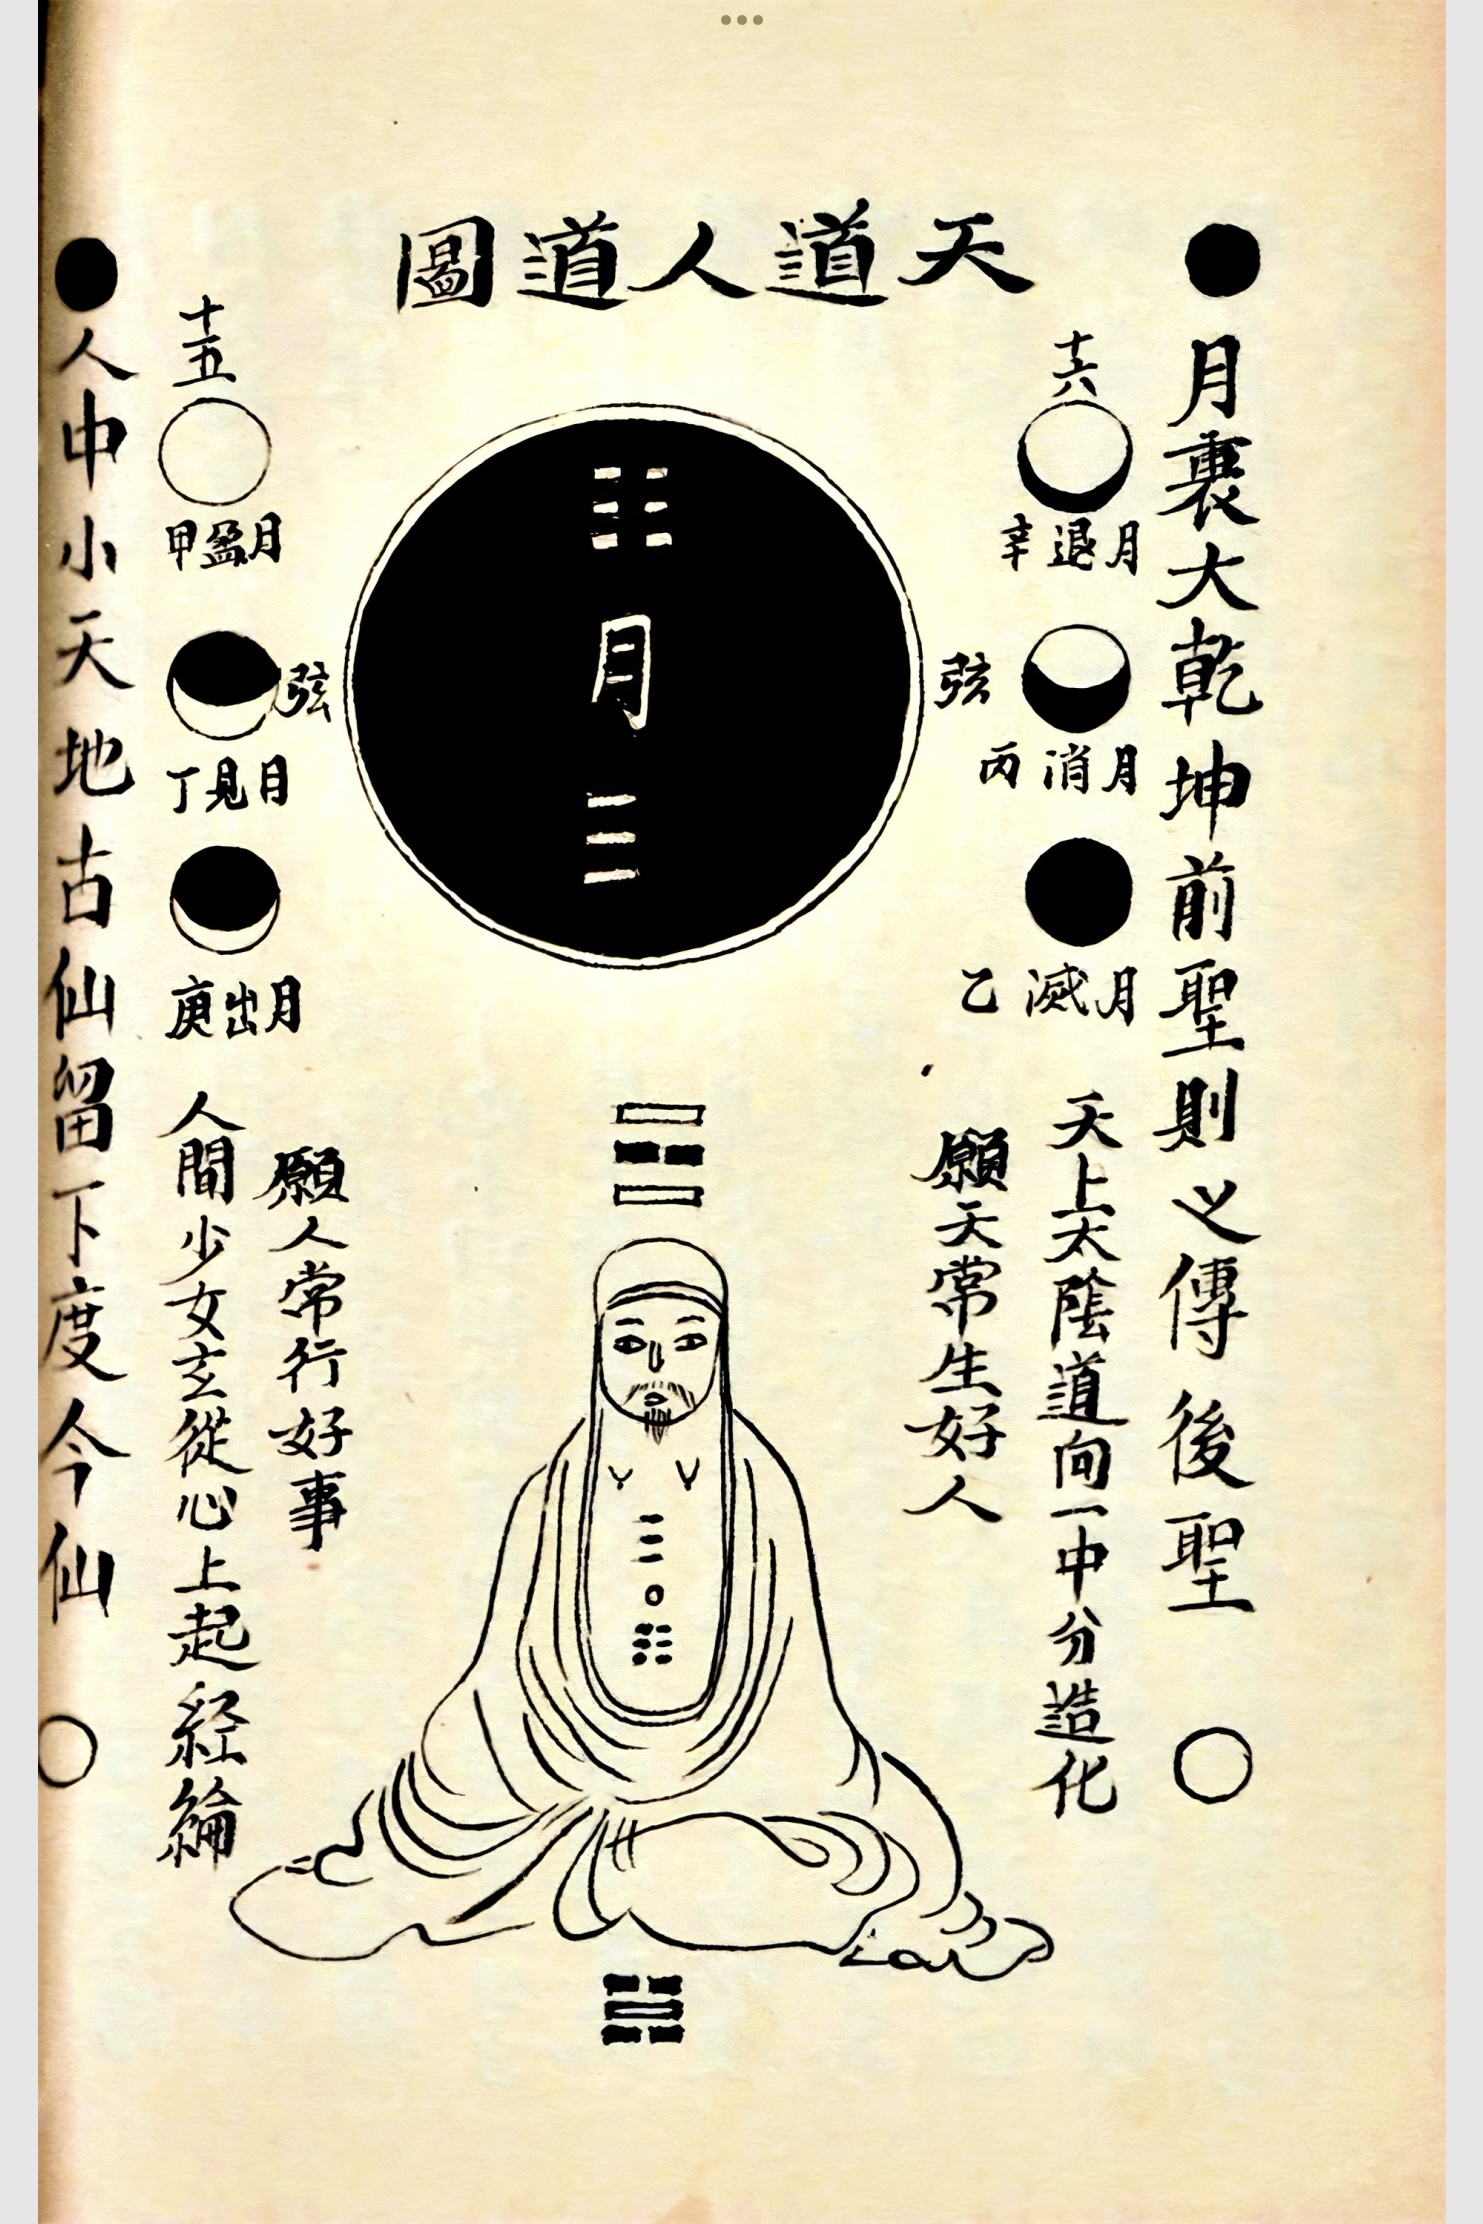 天道人道圖
月裏大乾坤前聖則之傳後聖
十六
月退辛
弦
月消丙
月滅乙
天上太陰道向一中分造化
願天常生好人
月
十五
月盈甲
弦
月見丁
月出庚
願人常行好事
人間少女玄從心上起経綸
人中小天地古仙留下度今仙